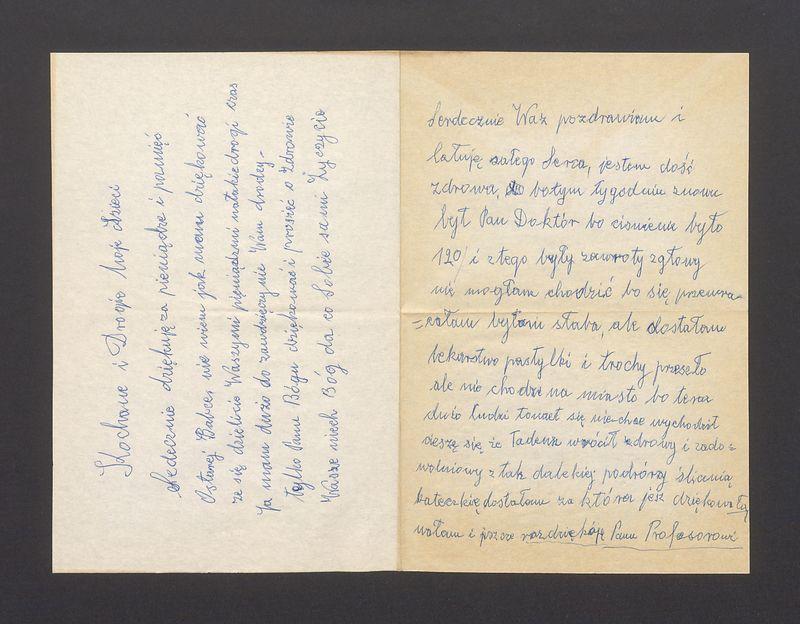 Kochane i Drogie Moje Dzieci
Sedecznie dziękuję za pieniądze i pamięć
O starej Babce, nie wiem jak mam dziękować
ze się dzielicie Waszymi pieniądzmi na takie drogi czas
Ja mam dużo do zawdzięczynie Wam drodzy-
tylko Panu Bógu dziękować i prosić o Zdrowie
Wasze niech Bóg da co Sobie sami Życzycie
Serdecznie Waz pozdrawiam i
całuję całego Serca, jestem dość
zdrowa, bo w tym tygodniu znowu
był Pan Doktór bo cisnienie było
190/ i ztego były zawroty zgłowy
nie mogłam chodzić bo się przewra-
=całam byłam słaba, ale dostałam
lekarstwo pastylki i trochy przesło
ale nie chodze na miasto bo tera
dużo ludzi to mnie się nie chce wychodzić
cieszę się że Tadeusz wrócił zdrowy i zado=
wolniowy z tak dalekiej podróży śliczną
bateczkie dostałam za która jesz dziękowa
wałam i jeszcze raz dziękóję Panu Profesorowi